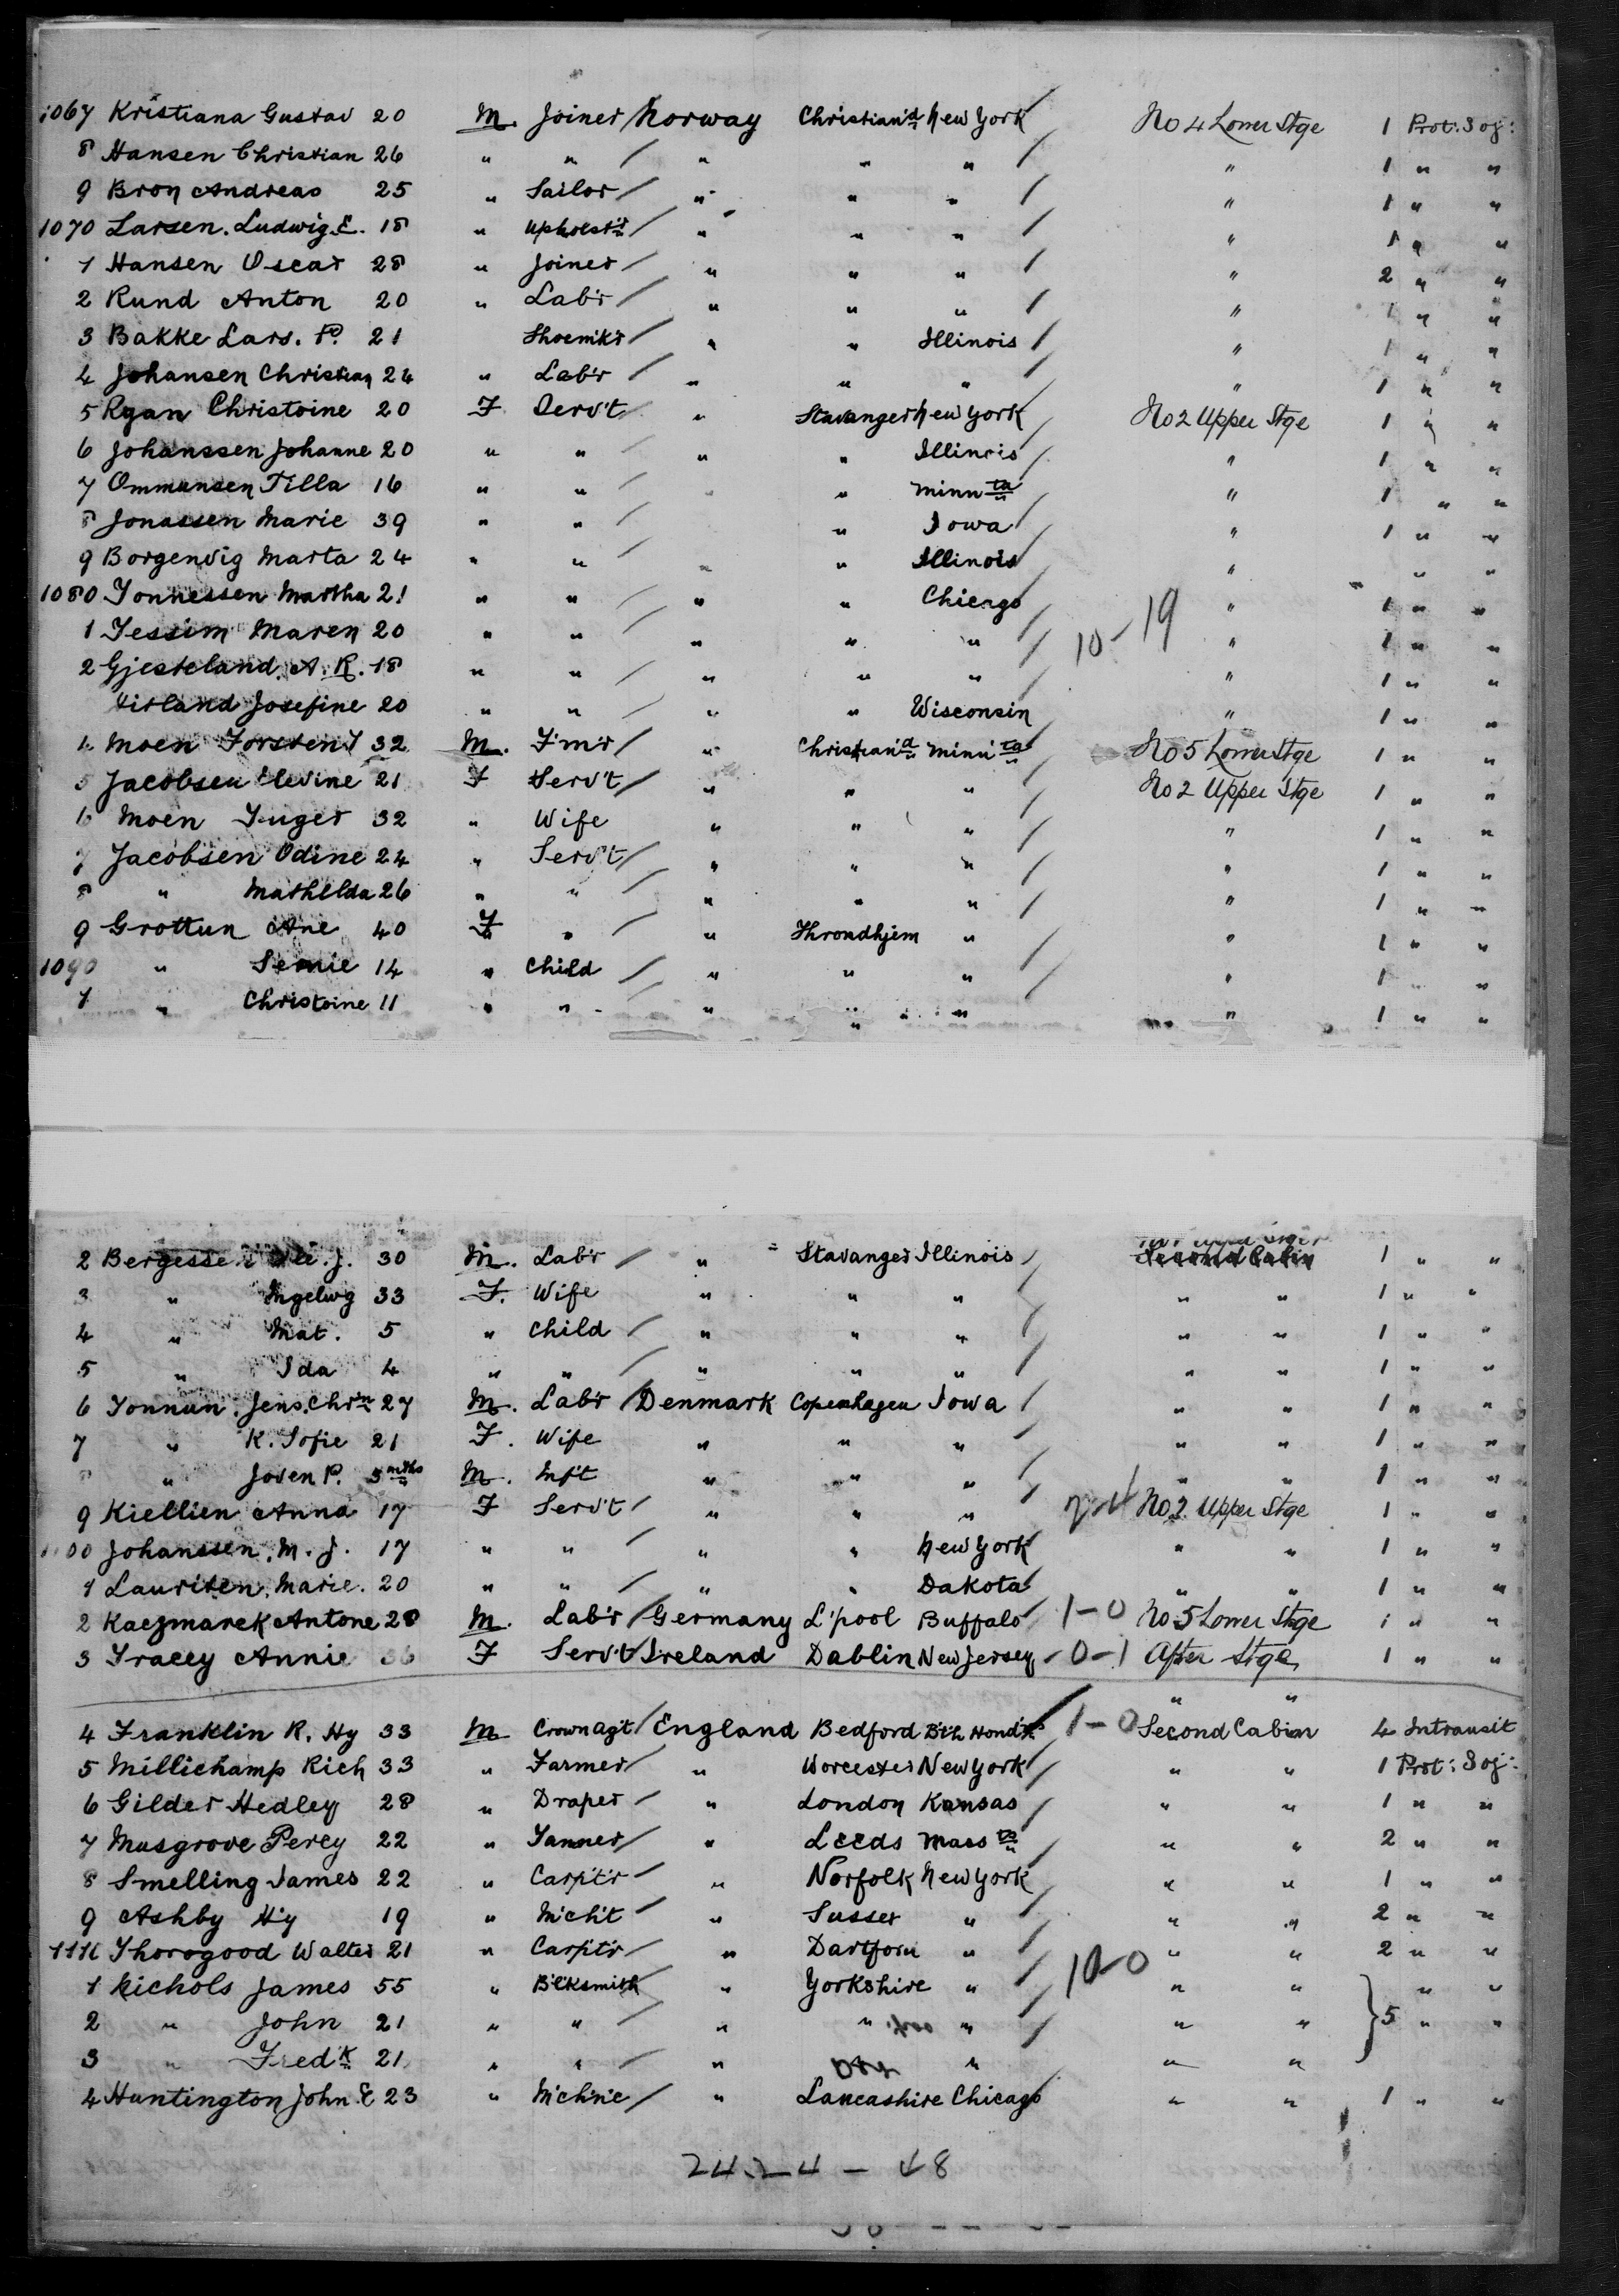 1067 Kristiana Gustav 20 M. Joiner / Norway Christian'd New York / No 4 Lower Stge 1 Prot: Soj:
8 Hansen Christian 26 " " / " " " / " 1 " "
9 Bron Andreas 25 " Sailor / " " " / " 1 " "
1070 Larsen. Ludwig. E. 18 " Upholst'r / " " " / " 1 " "
1 Hansen Oscar 28 " Joiner / " " " / " 2 " "
2 Rund Anton 20 " Lab'r / " " " / " 1 " "
3 Bakke Lars. P. 21 Shoemk'r / " " Illinois / " 1 " "
4 Johansen Christian 24 " Lab'r / " " " / " 1 " "
5 Ryan Christoine 20 F Serv't " Stavanger New York / No 2 Upper Stge 1 " "
6 Johanssen Johanne 20 " " " " Illinois / " 1 " "
7 Ommunsen Tilla 16 " " / " " Minn ta / " 1 " "
8 Jonassen Marie 39 " " / " Iowa / " 1 " "
9 Borgenvig Marta 24 " " / " " Illinois / " " "
1080 Tonnessen Martha 21 " " / " " Chicago / " 1 " "
1 Tessim Maren 20 " " / " " " / 10-19 " 1 " "
2 Gjesteland. A. R. 18 " " / " " " / " 1 " "
Josefine 20 " " / " " Wisconsin " 1 " "
Moen Torsten T 32 M. F'm'r / " Christian'd Minn'ta No 5 Lower Stge 1 " "
Jacobsen Elevine 21 F Serv't / " " " / No 2 Upper Stge 1 " "
6 Moen Inger 32 " Wife " " " / " 1 " "
7 Jacobsen Odine 24 " Serv't / " " " / " 1 " "
8 " Mathilda 26 " " / " " " / " 1 " "
9 Grottun Ane 40 F " / " Throndhjem " / " 1 " "
1090 " 14 " Child / " " " / " 1 " "
1 " Christoine 11 " " " " " " 1 " "
2 J. 30 M. Lab'r / " Stavanger Illinois / Second Cabin 1 " "
3 " Ingelwg 33 F. Wife " " " / " " 1 " "
4 " Mat. 5 " Child / " " " / " " 1 " "
5 " Ida 4 " " / " " " / " " 1 " "
6 Tonnun. Jens. Chr'n 27 M. Lab'r / Denmark Copenhagen Iowa / " " 1 " "
7 " K. Sofie 21 F. Wife " " " / " " 1 " "
8 " Joven P. 5 mths M. Inf't " " " / " " 1 " "
9 Kiellien Anna 17 F Serv't / " " " 2-4 No 2 Upper Stge 1 " "
1100 Johanssen. M. J. 17 " " / " " New York " " 1 " "
1 Lauriten. Marie. 20 " " / " " Dakota " " 1 " "
2 Kaczmarek Antone 28 M. Lab'r / Germany L'pool Buffalo / 1-0 No 5 Lower Stge 1 " "
3 Tracey Annie 36 F Serv't / Ireland Dablin New Jersey - 0-1 After Stge 1 " "
" "
4 Franklin R. Hy 33 M Crown Ag't / England Bedford / 1-0 Second Cabin 4 Intransit
5 Millichamp Rich 33 " Farmer / " Worcester New York / " " 1 Prot: Soj:
6 Gilder Hedley 28 " Draper / " London Kansas / " " 1 " "
7 Musgrove Percy 22 " Tanner / " Leeds Mass ts / " " 2 " "
8 Smelling James 22 " Carpt'r / " Norfolk New York / " " 1 " "
9 Ashby H'y 19 " M'ch't / " Sussex " / " " 2 " "
1110 Thorogood Walter 21 " Carpt'r / " " / " " 2 " "
1 Nichols James 55 " Bl'ksmith " Yorkshire " / 10-0 " " " "
2 " John 21 " " / " " " / " " } 5 " "
3 " Fred'k 21 " " / " " " "
4 Huntington John. E 23 " M'chnic / " Lancashire Chicago " " 1 " "